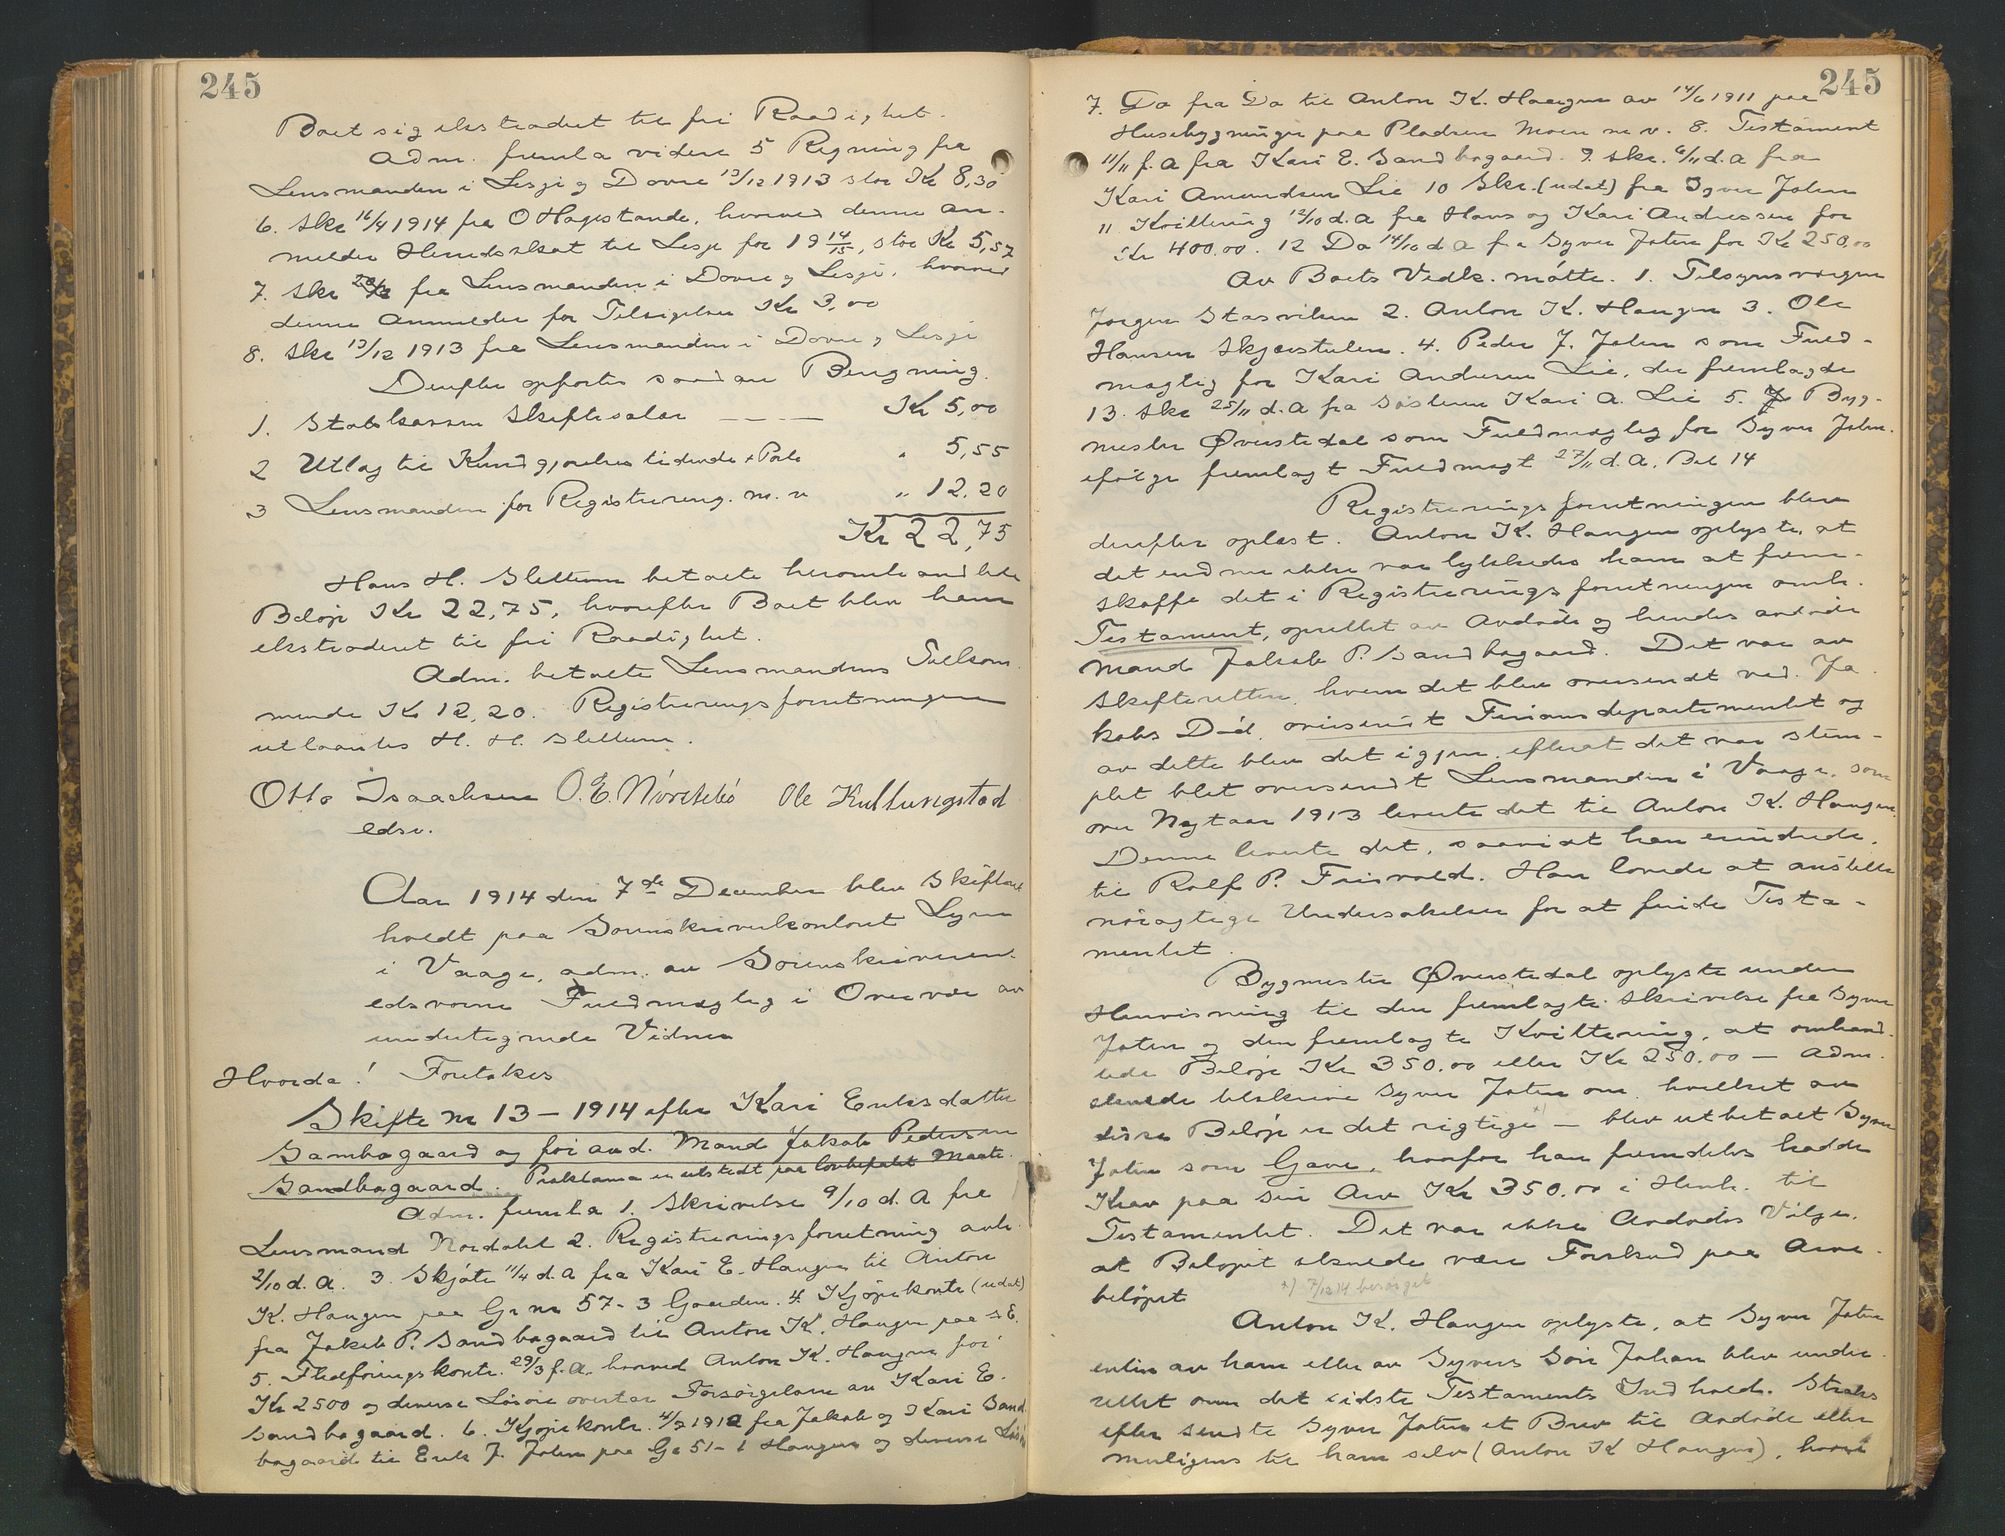 245
Boet sig ekstraderet til fri Raadighet.
Adm. fremla videre 5 Regning fra
Lensmanden i Lesje og Dovre 13/12 1913 stor Kr 8,30
6. Skr 16/4 1914 fra O Hagestande, hvorved denne an-
melder Heredsskat til Lesje for 19 14/15, stor Kr 5,57
7. Skr fra Lensmanden i Dovre og Lesje, hvorved
denne anmelder for Tilsigelser Kr 3,00
8. Skr 13/12 1913 fra Lensmanden i Dovre og Lesje
Derefter opførtes saadan Beregning.
1. Statskassen Skiftesalær — — — Kr 5,00
2 Utlag til Kundgjørelsestidende + Porto " 5,55
3 Lensmanden for Registrering. m. v " 12,20
Kr 22,75
Hans H. Slettum betalte heromhandlede
Beløp Kr 22,75, hvorefter Boet blev ham
ekstraderet til fri Raadighet.
Adm. betalte Lensmandens Tilkom-
mende Kr 12,20. Registreringsforretningen
utlaantes H. H. Slettum.
Otto Isaachsen O. E. Nørstebö Ole Kultungstad
edsv.
Aar 1914 den 7de December blev Skifteret
holdt paa Sorenskriverkontoret Lyen
i Vaage, adm. av Sorenskriverens
edsvorne Fuldmægtig i Overvær av
undertegnede Vidner
Hvorda! Foretokes
Skifte nr 13 – 1914 efter Kari Eriksdatter
Sambagaard og forh. avd. Mand Jakob Pedersen
Sandbagaard. Proklama er utstedt paa lovbefalet Maate.
Adm. fremla 1. Skrivelse 9/10 d. A fra
Lensmand Nordahl 2. Registreringsforretning avh.
2/10 d. A. 3. Skjøte 11/4 d. A fra Kari E. Haugen til Anton
K. Haugen paa Gr nr 57-3 Gaarden. 4 Kjøpekontr (udat)
fra Jakob P. Sandbagaard til Anton K. Haugen paa s. E.
5. Flødføringskontr. 29/3 f. A. hvorved Anton K. Haugen for
Kr 2500 og diverse Løsøre overtar Forsørgelsen av Kari E.
Sandbagaard. 6. Kjøpekontr. 4/7 1912 fra Jakob og Kari Sand-
bagaard til Erik J. Jolen paa G 51-1 Haugen og diverse
245
7. Do fra Do til Anton K. Haugen av 14/6 1911 paa
Husebygninger paa Pladsen Moen m v. 8. Testament
11/11 f. A fra Kari E. Sandbagaard. 9. Skr. 6/11 d. A fra
Kari Amundsen Lie 10 Skr. (udat) fra Syver Jolen
11 Kvittering 12/10 d. A fra Hans og Kari Andressen for
Kr 400.00. 12 Do 14/10 d. A fra Syver Jolen for Kr 250.00
Av Boets Vedk. møtte. 1. Tilsynsværgen
Jørgen Stasviken 2. Anton K. Haugen 3. Ole
Hansen Skjærstulen. 4. Peder J. Jolen som Fuld-
mægtig for Kari Andersen Lie, der fremlagde
13. Skr 25/11 d. A fra Søsteren Kari A. Lie 5. Byg-
mester Øverstedal som Fuldmægtig for Syver Jolen
ifølge fremlagt Fuldmagt 27/11 d. A. Bil 14
Registreringsforretningen blev
derefter oplæst. Anton K. Haugen oplyste, at
det endnu ikke var lykkedes ham at frem-
skaffe det i Registreringsforretningen omh.
Testament, oprettet av Avdøde og hendes avdøde
Mand Jakob P. Sandbagaard. Det var av
Skifteretten, hvem det blev oversendt ved Ja-
kobs Død, oversendt Finansdepartementet og
av dette blev det igjen, efterat det var stem-
plet blet oversendt Lensmanden i Vaage, som
over Nytaar 1913 leverte det til Anton K. Haugen.
Denne leverte det, saavidt han erindrede,
til Rolf P. Frisvold. Han lovede at anstille
nøiagtige Undersøkelser for at finde Testa-
mentet.
Bygmester Øverstedal oplyste under
Henvisning til den fremlagte Skrivelse fra Syver
Jolen og den fremlagte Kvittering, at omhand-
lede Beløp Kr 350.00 eller Kr 250.00 – Adm.
skulde tilskrive Syver Jolen om, hvilket av
disse Beløp er det rigtige x) – blev utbetalt Syver
Jolen som Gave, hvorfor han fremdeles hadde
Krav paa sin Arv Kr 350.00 i Henh. til
Testamentet. Det var ikke Avdødes Vilje,
at Beløpet skulde være Forskud paa Arve-
beløpet x) 7/12 14 besørget
Anton K. Haugen oplyste, at Syver Jolen
enten av ham eller av Syvers Søn Johan blev under-
rettet om det sidste Testaments Indhold. Straks
efter sendte Syver Jolen et Brev til Avdøde eller
muligens til ham selv (Anton K Haugen), hvori